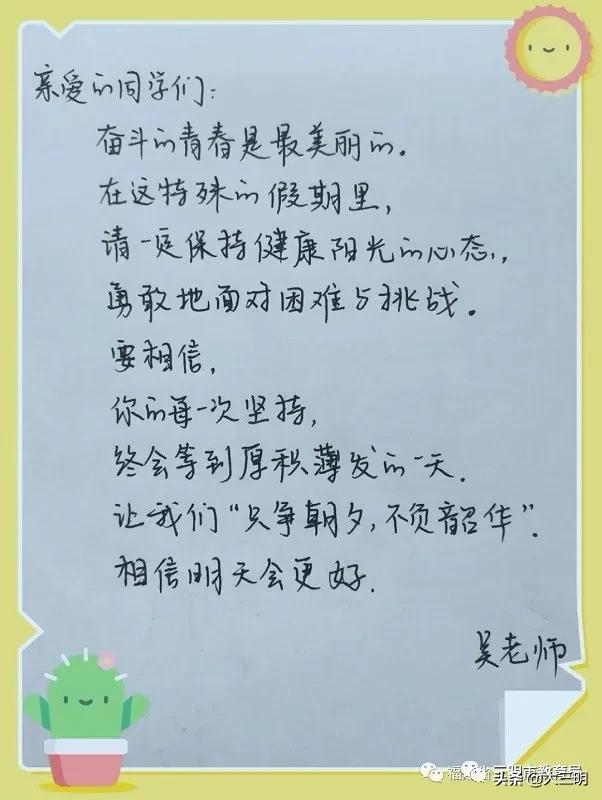 亲爱的同学们：
奋斗的青春是最美丽的。
在这特殊的假期里，
请一定保持健康阳光的心态，
勇敢地面对困难与挑战。
要相信，
你的每一次坚持，
终会等到厚积薄发的一天．
让我们“只争朝夕，不负韶华”．
相信明天会更好．
吴老师
头条@大三明